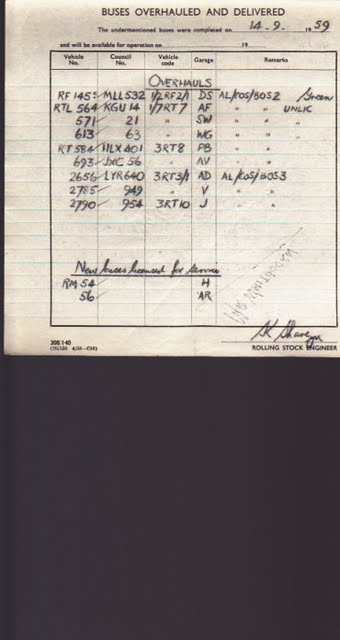 BUSES OVERHAULED AND DELIVERED
The undermentioned buses were completed on 14.9. 1959
and will be available for operation on 19
Vehicle No. Council No. Vehicle code Garage Remarks
OVERHAULS
RF 145 MLL532 1/2RF2/1 DS AL/KOS/BOS2 Green
RTL 564 KGU 14 1/7RT7 AF " " UNLIC
571 21 " SW " " "
613 63 " WG " " "
RT 584 HLX 401 3RT8 PB " "
693 JXC 56 " AV " "
2656 LYR 640 3RT3/1 AD AL/KOS/BOS3
2785 949 " V " "
2790 954 3RT10 J " "
New buses licensed for service
RM 54 H
56 AR
ROLLING STOCK ENGINEER
308/140